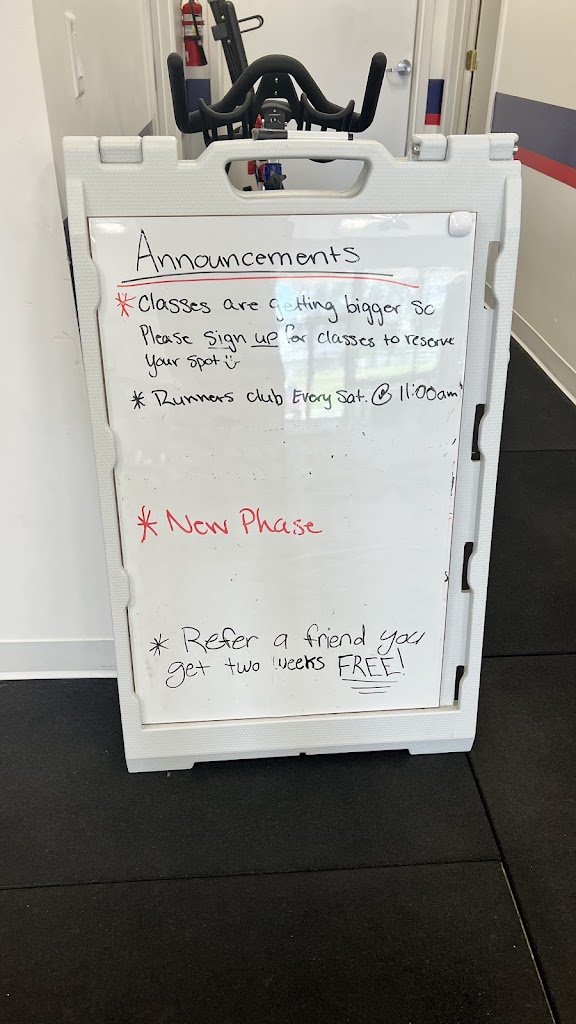 Announcements
* Classes are getting bigger so
Please sign up for classes to reserve
your spot :)
* Runners club Every Sat. @ 11:00am
* New Phase
* Refer a friend you
get two weeks FREE!